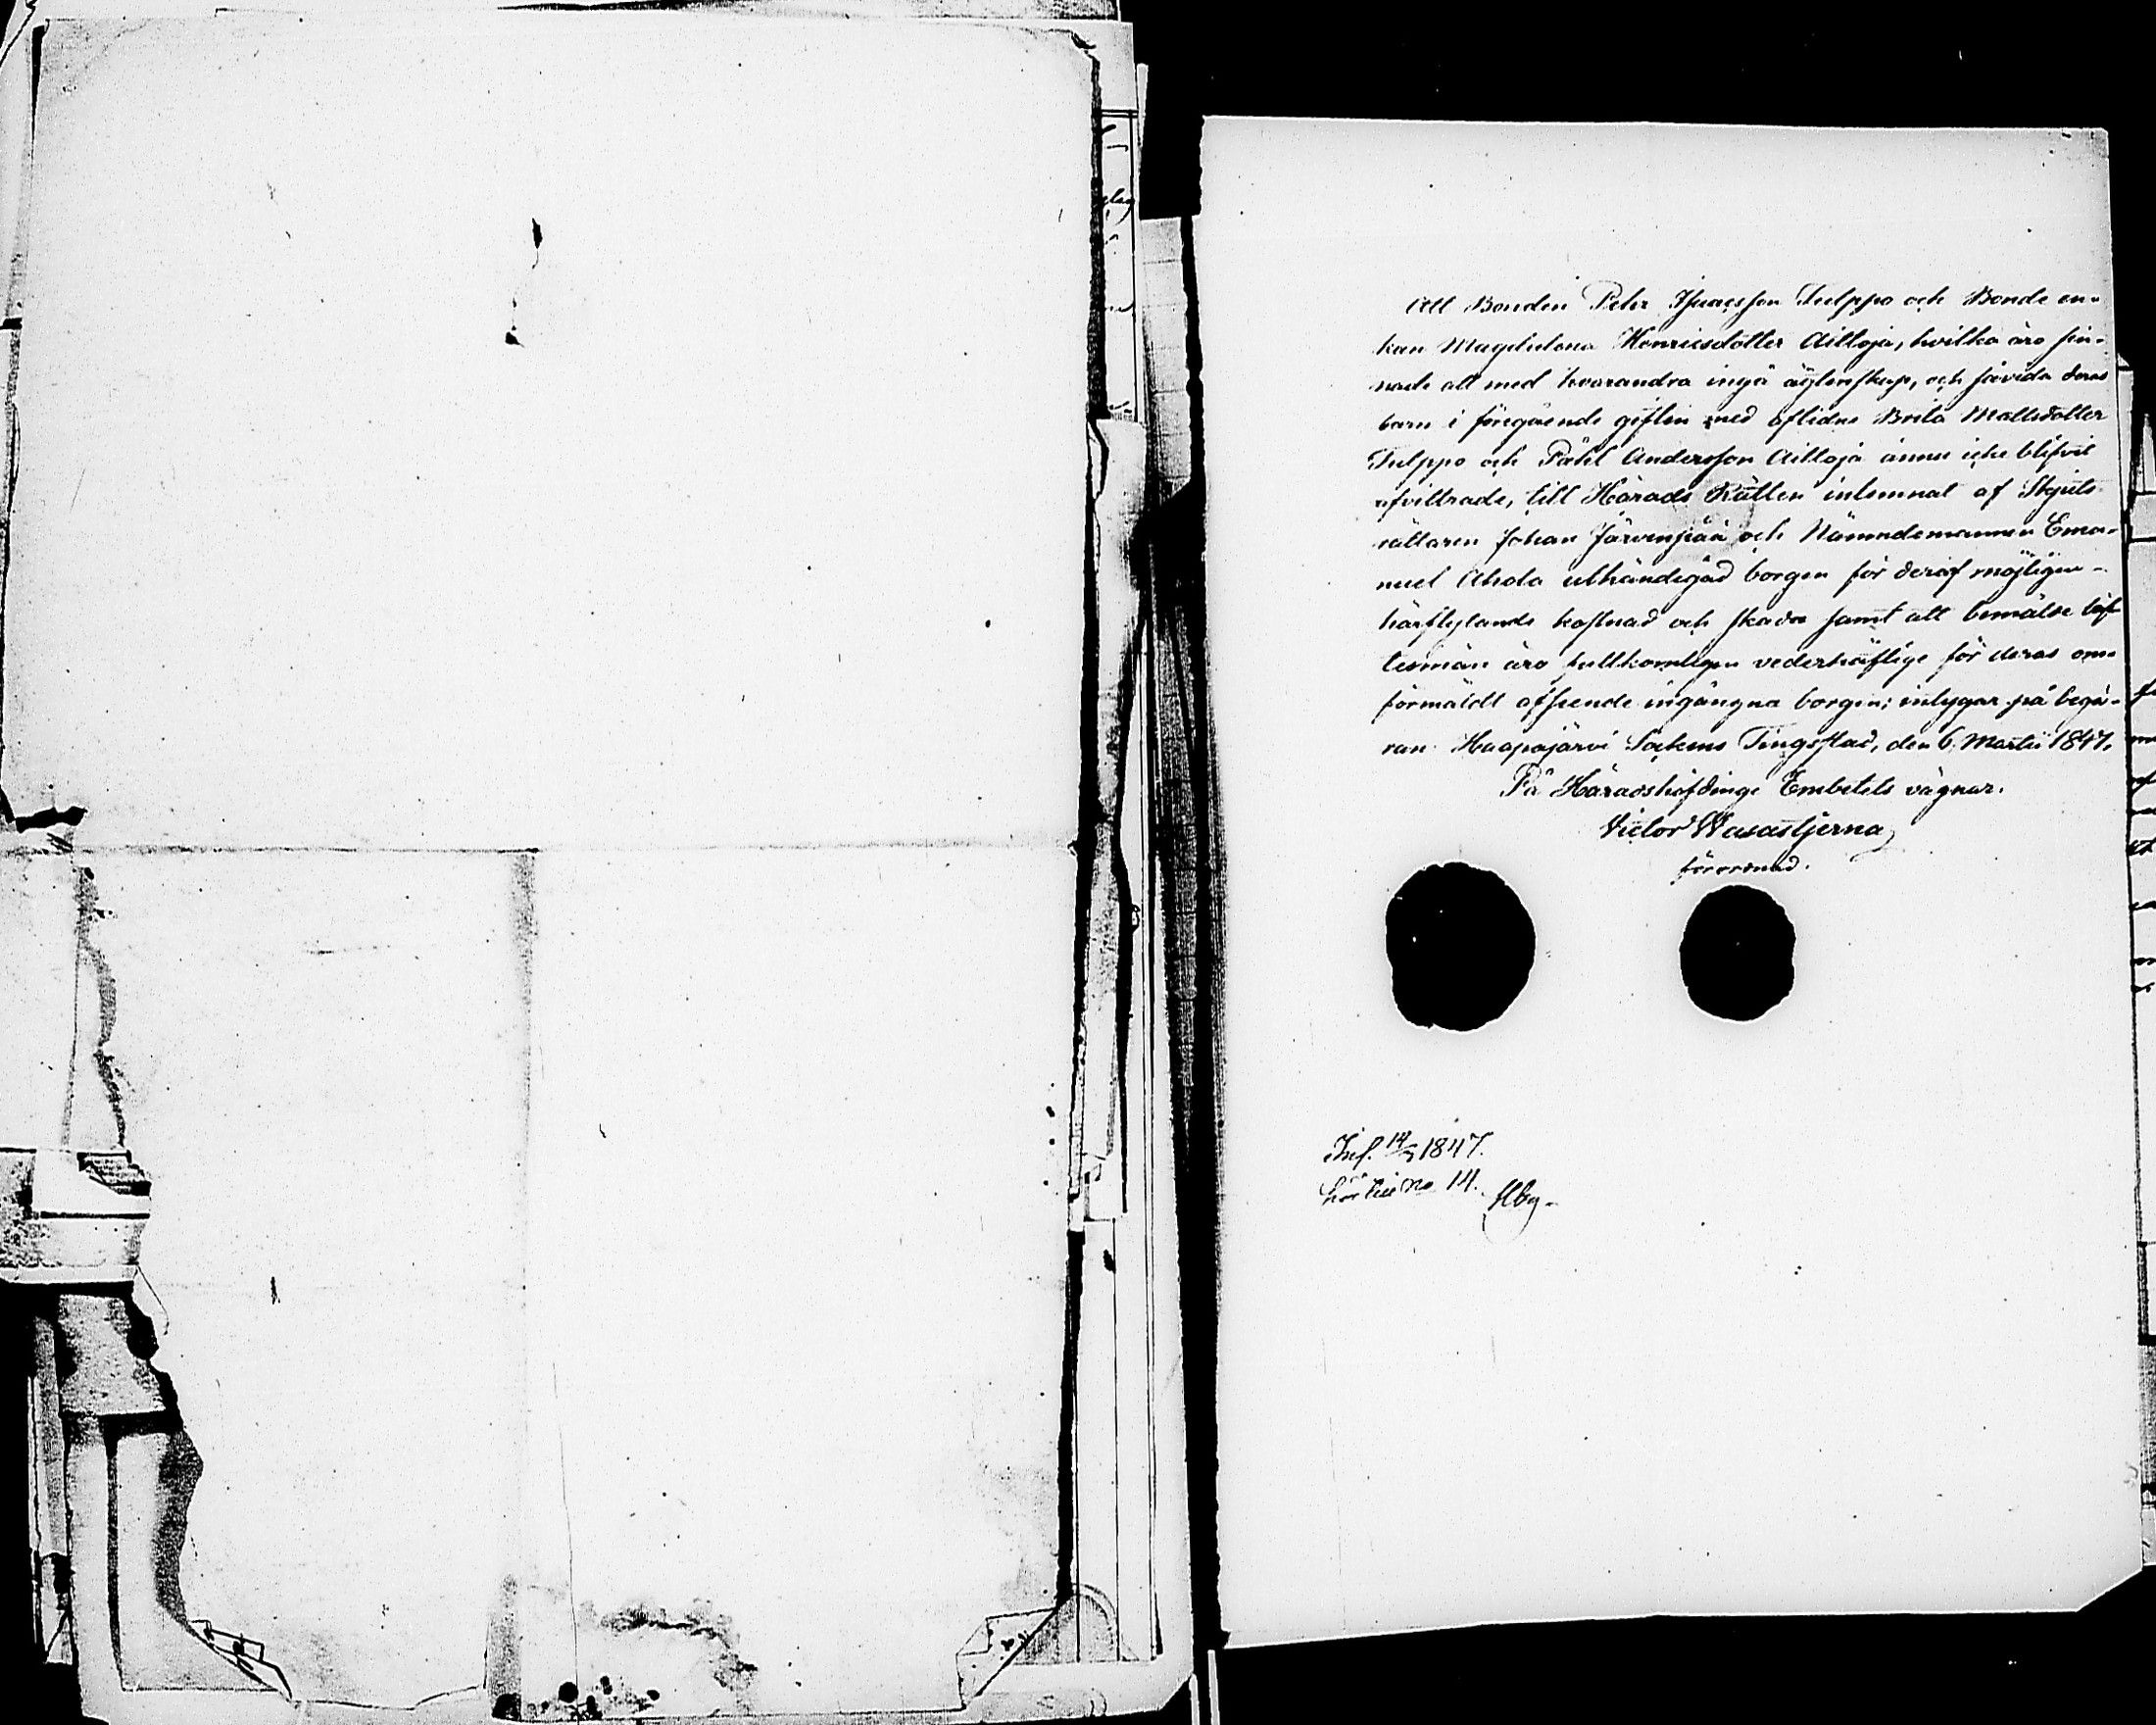 Att Bonden Pehr Isacsson Tulppo och Bonde en-
kan Magdalena Henricsdotter Aittoja, hvilka äro sin-
nade att med hvarandra ingå ägtenskap, och såvida deras
barn i föregående giften med aflidne Brita Mattsdotter
Tulppo och Påhl Andersson Aittoja ännu icke blifvit
afvittrade, till Härads Rätten inlemnat af Skjuts-
rättaren Johan Järvenpää och Nämndemannen Ema-
nuel Ahola uthändigad borgen för deraf möjligen
härflytande kostnad och skada samt att bemälde löf-
tesmän äro fullkomligen vederhäftige för deras om-
förmäldt afseende ingångna borgen; intygar på begä-
ran. Haapajärvi Sockens Tingsstad, den 6 Martii 1847.
På Häradshöfdinge Embetets vägnar.
Victor Wasastjerna
förordnad.
Inf. 14/3 1847.
hör till No 14.